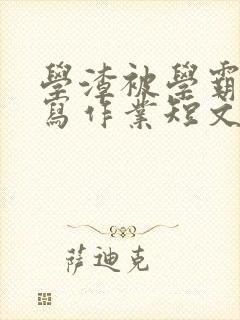 學渣被學霸
寫作業短文
薩迪克